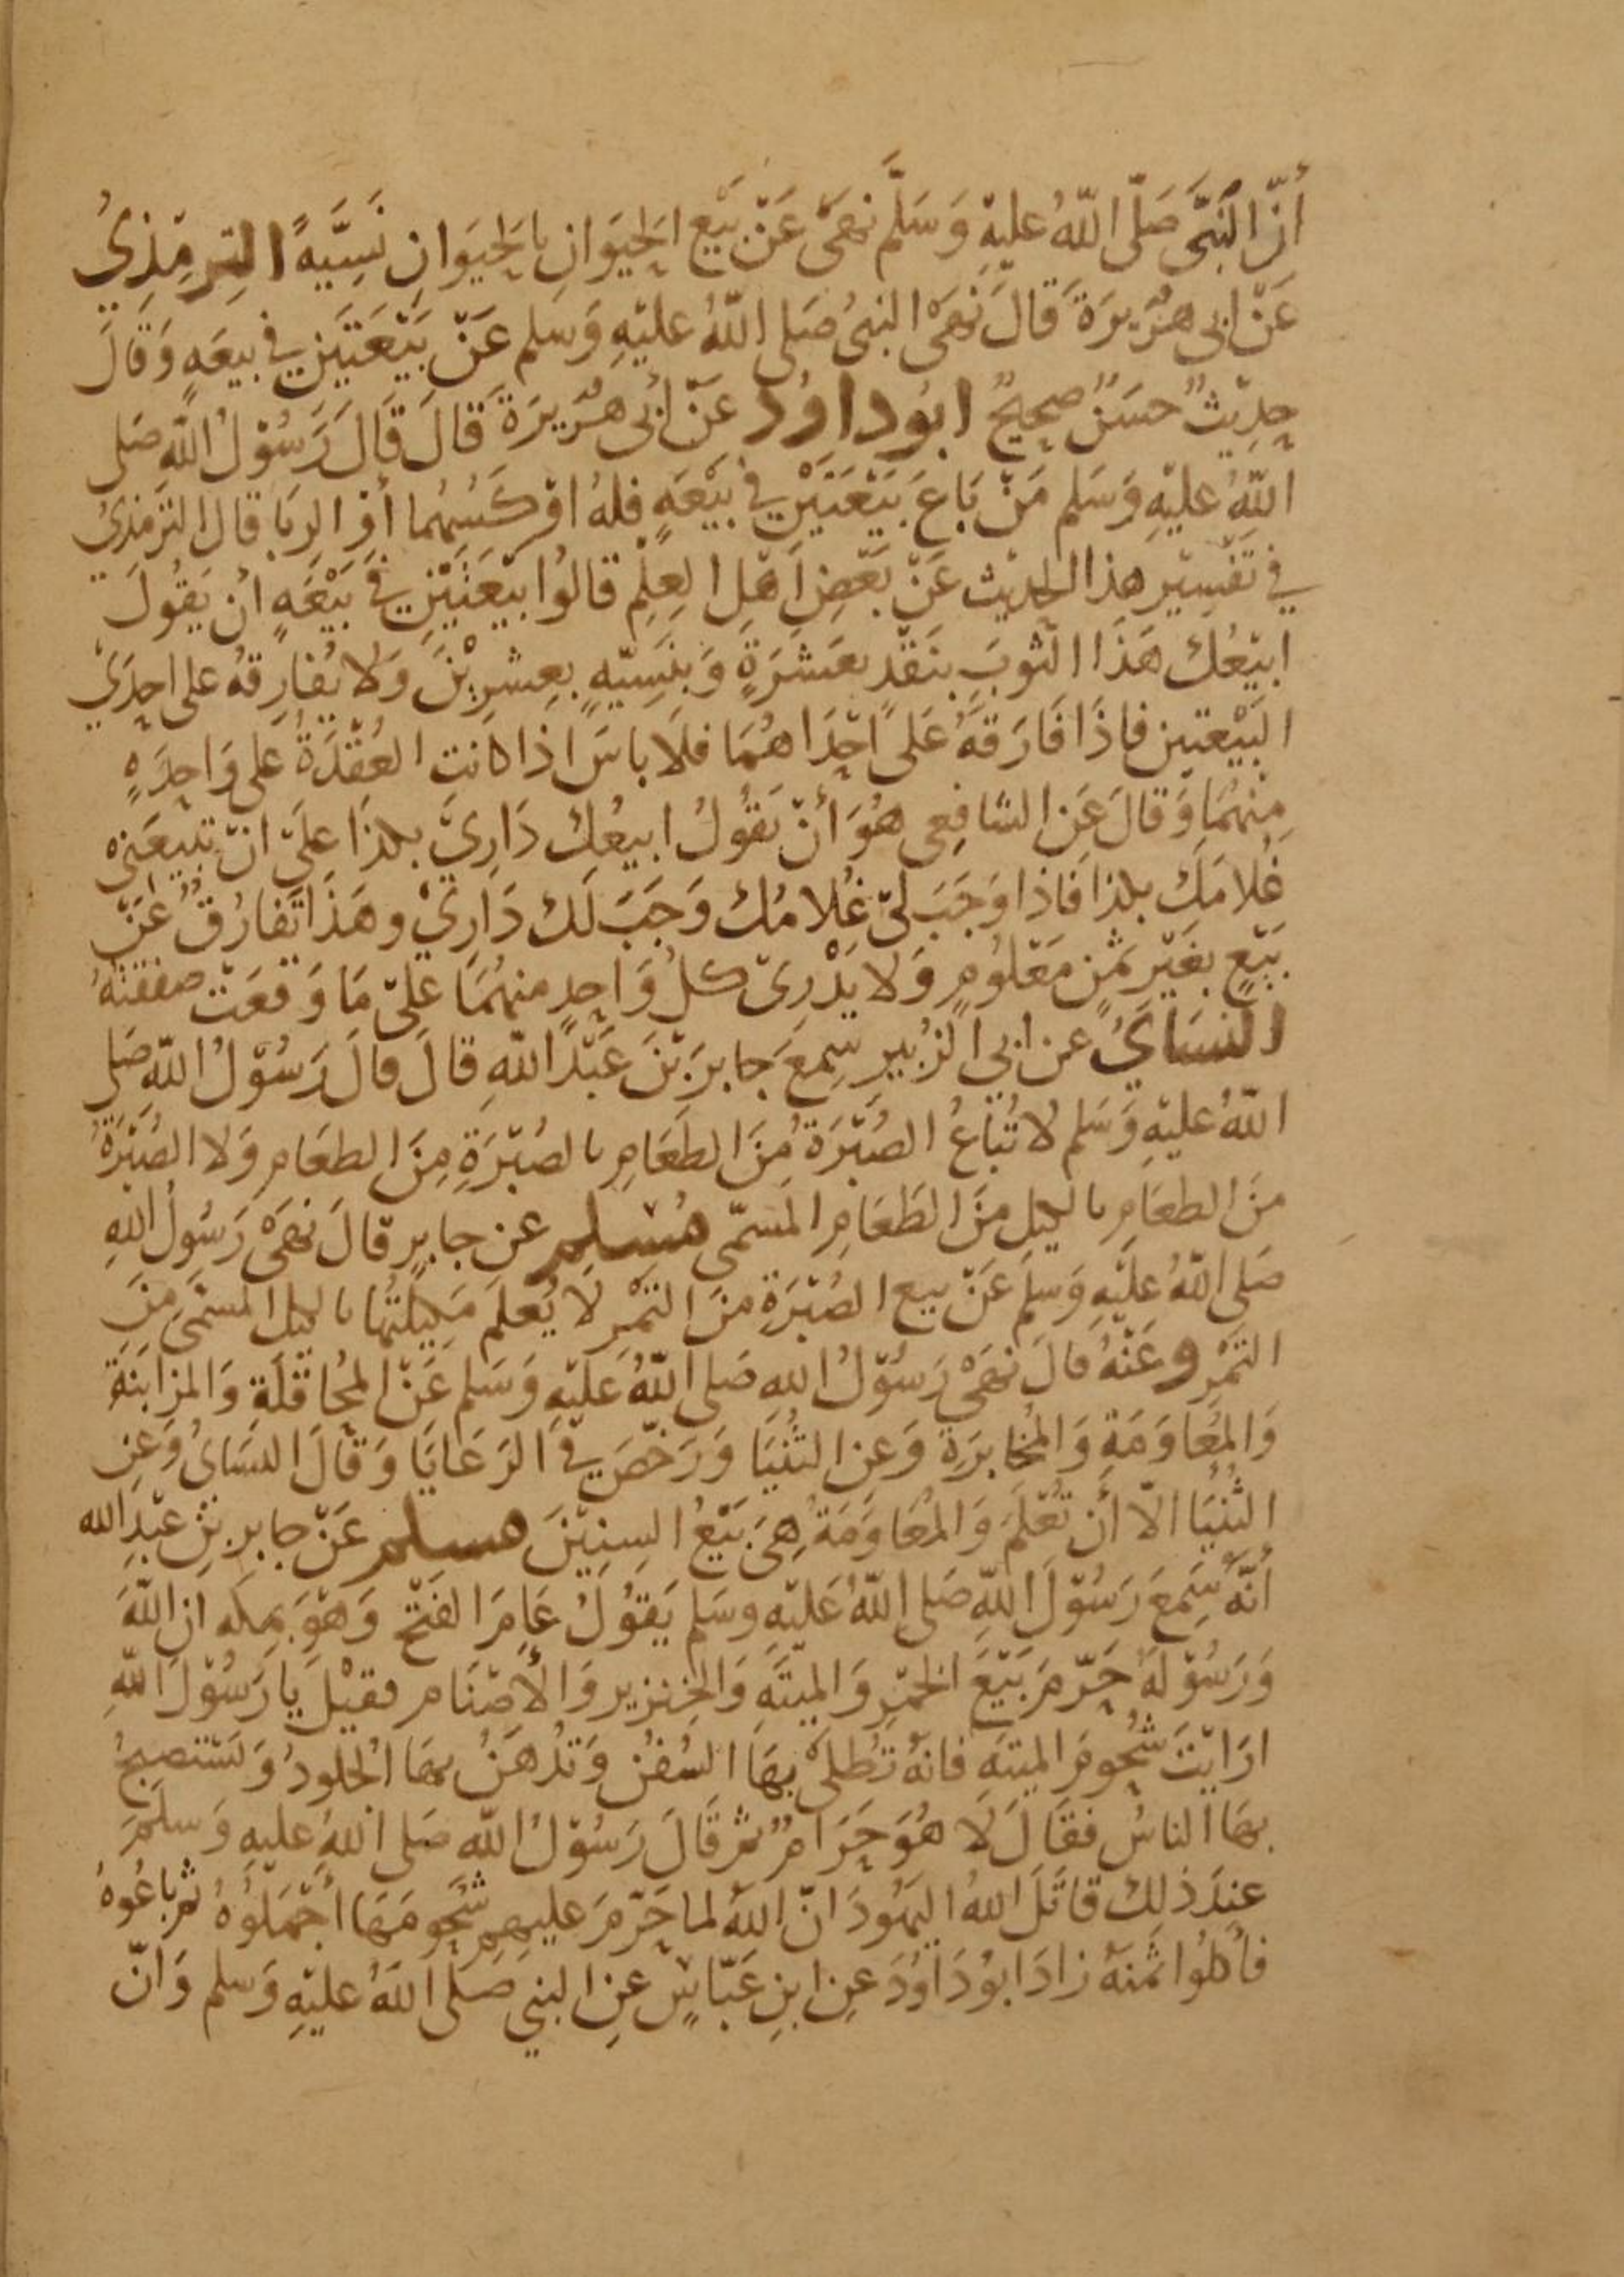 أنّ النَبيَّ صَلّى اللّهُ عليهِ وَسَلَّم نهَى عَنْ بَيْع الحيَوَانِ بالحيَوَانِ نَسِيَّهً الترمِذيُ
عَنْ ابى هُرَيرَةَ قالَ نهَى النبىُ صَلى اللّهُ عليْهِ وَسَلم عَنْ بَيْعَتَيْنِ في بيعَهٍ وَقالَ
حدِيثٌ حسَنٌ صحيحٌ ابوُداوُد عَنْ أبى هُرَيرَةَ قالَ قالَ رَسُوْلُ اللّهِ صَلى
اللّهُ عليْهِ وَسَلم مَنْ بَاعَ بَيْعَتَيْنِ في بَيْعَهٍ فلهُ اوْكسُهُما أوْ الرِبَا قال الترمذيُ
في تَفْسِيْر هذا الحديث عَنْ بَعْضِ اَهْلِ العِلْمِ قالوُا بَيْعَتَيْنِ في بَيْعَهٍ أنْ يقُولَ
ابيْعُك هَذَا الثوبَ بنَقْدٍ بعَشرَةٍ وَبنَسِيّهٍ بعِشرِيْنَ وَلا يُفارِقهُ على احدَيْ
البَيْعَتينِ فاذَا فَارَقهُ عَلى اَحْدَاهُمَا فلَا باسَ اذا كانتِ العُقْدَةُ على وَاحِدَهٍ
مِنْهُمَا وَقالَ عَن الشافِعى هُوَ أنْ يَقُولُ ابيعُك دَارِيْ بكذَا علَى انْ تبيْعَنى
غُلامَك بكذا فَاذا وَجَبَ لىْ غُلامُك وَجَبَ لَك دَارِيْ وهَذَا تَفارُقٌ عَنْ
بَيْعٍ بغَيْر ثمَنٍ مَعْلوُمٍ وَلا يَدْرِىْ كلُ وَاحِدٍ منهُمَا علىْ مَا وَقعَتْ صفقتهُ
النسَايُ عن ابي الزُبيرِ سِمعَ جابرَ بْنَ عَبْدَ اللّهِ قالَ قالَ رَسُوْلُ اللّهِ صَلى
اللّهُ عليْهِ وَسَلم لا تُبَاعُ الصُبْرَةُ مِنَ الطعَامِ بالصُبْرَةِ مِنَ الطعَامِ وَلا الصُبْرَةُ
منَ الطعَامِ بالكيلِ منَ الطَعَامِ المسَمّى مُسْلم عن جابرٍ قالَ نهَىْ رَسُولُ اللهِ
صَلى اللّهُ عليْهِ وَسلمَ عَنْ بيع الصُبْرَةِ منَ التَمْرِ لا يُعلَم مَكِيْلتُهَا بالكيل المسَمّى مِنَ
التَمْرِ وعَنْهُ قالَ نهَىْ رَسُوْلُ اللهِ صَلى اللّهُ عَليْهِ وَسَلم عَنْ المُحَاقَلَةِ وَالمزَابنَةِ
وَالمُعَاوَمَةِ وَالمُخابرَةِ وَعن الثُنْيَا وَرَخّصَ في الرَعَايَا وَقالَ النسَاىُ وَعن
الثُنْيَا الّا أنْ تُعْلَمَ وَالمُعَاوَمَةُ هىَ بَيْعُ السنِيْنَ مسلم عَنْ جابر بْنِ عَبْدِ الله
أنّهُ سَمِعَ رَسُوْلَ اللّهِ صَلى اللّهُ عَليْهِ وسَلم يَقوُلُ عَامَ الفتْح وَهوَ بمكه ان اللّهَ
وَرَسُوْلهُ حَرّمَ بَيْعَ الخمْرِ وَالميتَهِ وَالخنزير وَالأصْنَامِ فقيْلَ يا رَسُوْلَ اللّهِ
ارَايْتَ شُحُومَ الميتهِ فانهُ تُطلىْ بهَا السُفنُ وَتُدْهَنُ بهَا الجلودُ وَتسْتصبحُ
بهَا الناسُ فقالَ لَا هُوَ حَرَامٌ ثم قَالَ رَسُوْلُ اللّهِ صَلى اللهُ عليهِ وَسلمَ
عندَ ذلِك قاتَلَ اللهُ اليَهُودَ انّ اللهَ لما حَرّمَ عليهم شحُومَهَا أجْمَلُوُهُ ثم باعُوهُ
فأكلوُا ثمنهُ زادَ ابوُدَاوُدَ عن ابنِ عَبّاسٍ عنِ النبيِ صَلى اللّهُ عليْهِ وَسلم وَانّ